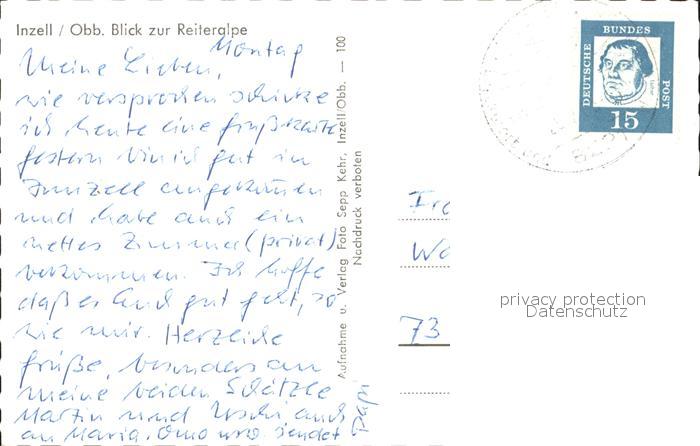 Inzell / Obb. Blick zur Reiteralpe
Montag
Meine Lieben,
wie versprochen schicke
ich heute eine Grußkarte
gestern bin ich gut in
Innzell angekommen
und habe auch ein
nettes Zimmer (privat)
bekommen. Ich hoffe
daß es Euch gut geht, so
wie mir. Herzliche
Grüße, besonders an
meine beiden Schätzle
Martin und Uschi auch
an Maria. Oma und sendet
Papi
Aufnahme u. Verlag Foto Sepp Kehr, Inzell/Obb. — 100
Nachdruck verboten
DEUTSCHE BUNDES POST
Luther
15
73
privacy protection
Datenschutz